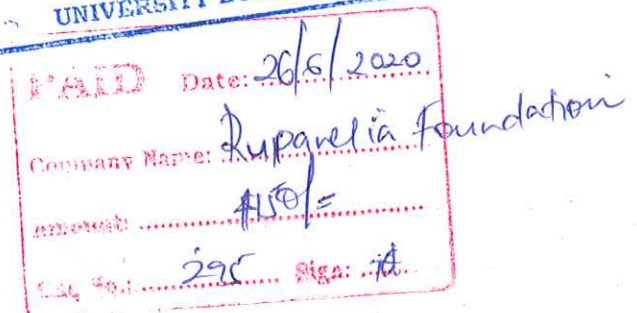 UNIVERSITY
PAID Date: 26/6/2020
Company Name: Ruparelia Foundation
Amount:
No.: 295 Sign: